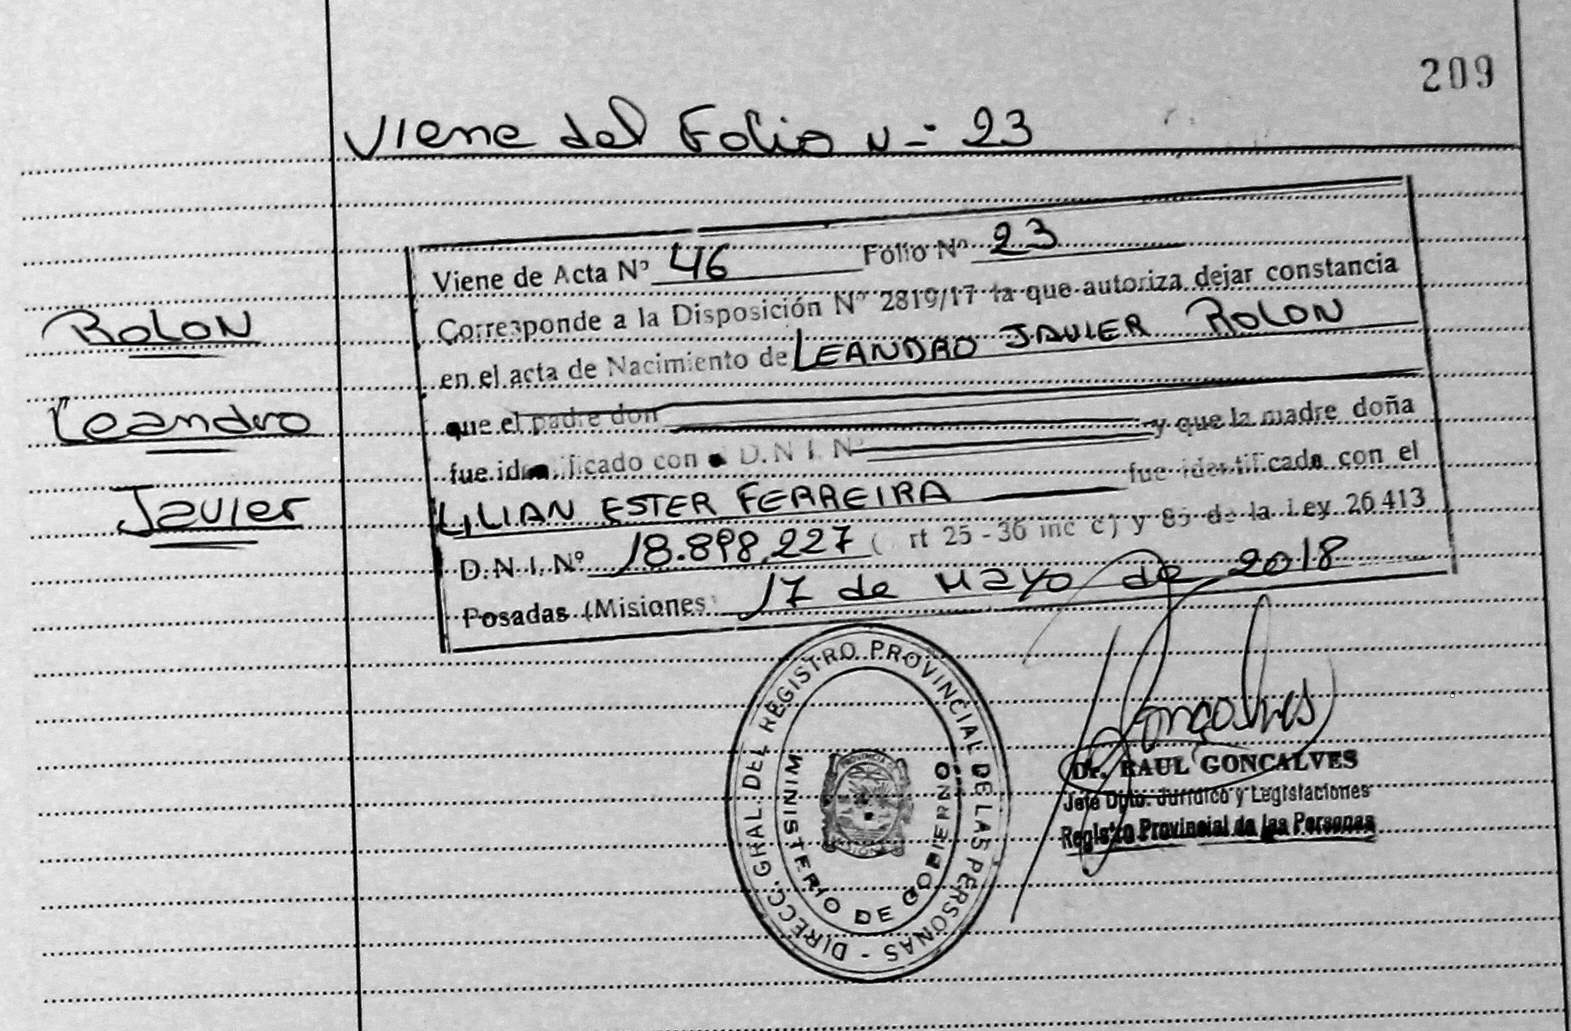 209
Viene del Folio N- 23
Viene de Acta Nº 46 Folio Nº 23
Corresponde a la Disposición Nº 2819/17 la que autoriza dejar constancia
en el acta de Nacimiento de LEANDRO JAVIER ROLON
que el padre don y que la madre doña
fue identificado con D.N.I. Nº fue identificada con el
LILIAN ESTER FERREIRA
D.N.I. Nº 18.898.227 ( rt 25-36 inc c) y 85 de la Ley 26413
Posadas (Misiones) 17 de Mayo de 2018
ROLON
Leandro
Javier
DIRECC. GRAL. DEL REGISTRO PROVINCIAL DE LAS PERSONAS -
MINISTERIO DE GOBIERNO
PROVINCIA
MISIONES
Goncalves
Dr. RAUL GONCALVES
Jefe Dpto. Jurídico y Legislaciones
Registro Provincial de las Personas